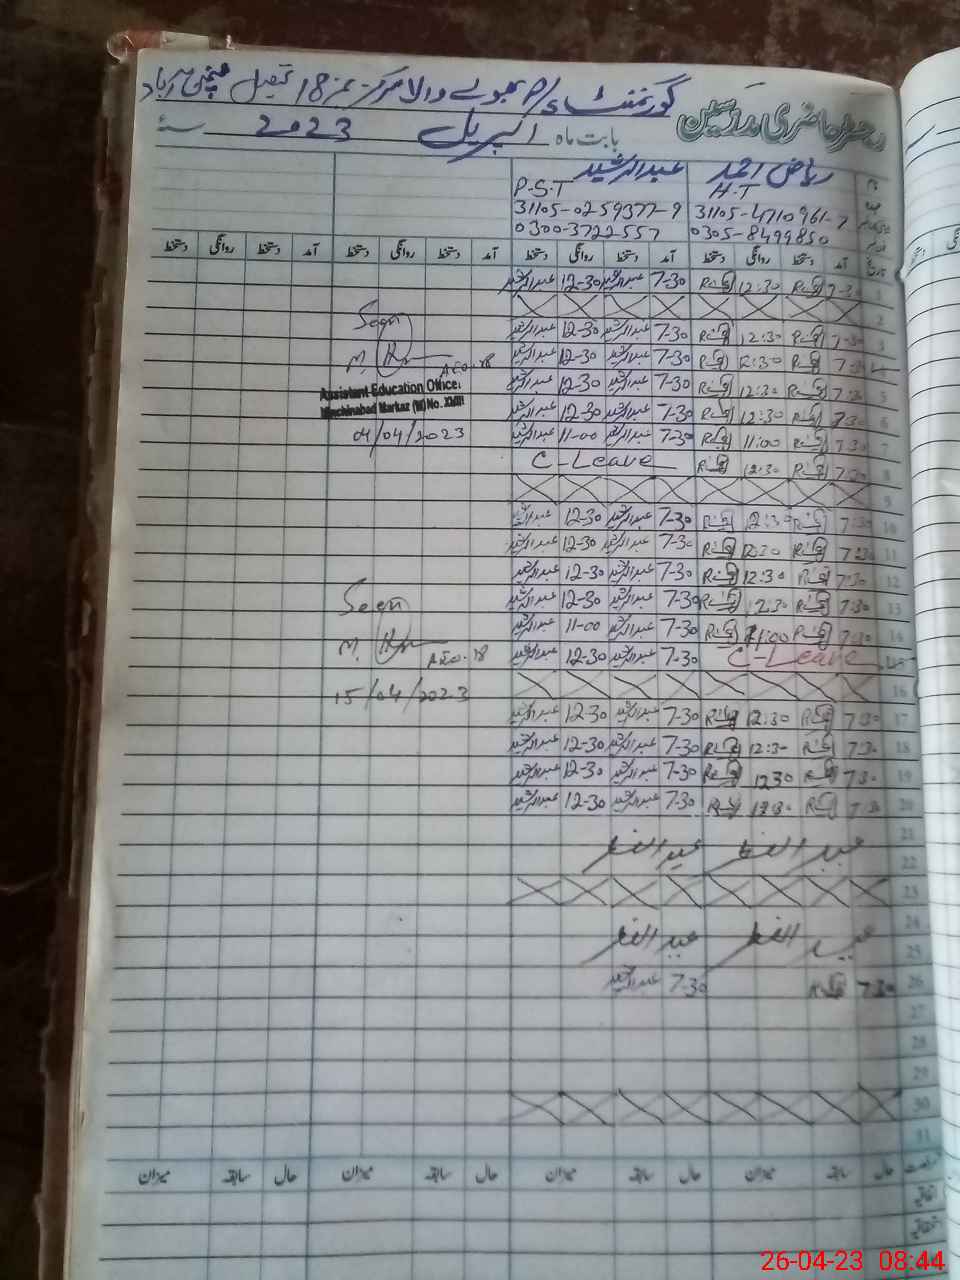 رجسٹر حاضری مدرسین
گورنمنٹ P/S والا مرکز نمبر 18 تحصیل منچن آباد
بابت ماہ اپریل 2023 سنہ
ریاض احمد عبدالرشید
H.T P.S.T
31105-4710961-7 31105-0259377-9
0305-8499850 0300-3722557
تاریخ آمد دستخط روانگی دستخط آمد دستخط روانگی دستخط آمد دستخط روانگی دستخط آمد دستخط روانگی دستخط
1 7-30 12:30 7-30 عبدالرشید 12-30 عبدالرشید
2
3 7-30 12:30 7-30 عبدالرشید 12-30 عبدالرشید
4 7:30 12:30 7-30 عبدالرشید 12-30 عبدالرشید
5 7:30 12:30 7-30 عبدالرشید 12-30 عبدالرشید
6 7:30 12:30 7-30 عبدالرشید 12-30 عبدالرشید
7 7:30 11:00 7-30 عبدالرشید 11-00 عبدالرشید
8 7:30 12:30 C-Leave
9
10 7:30 12:30 7-30 عبدالرشید 12-30 عبدالرشید
11 7:30 12:30 7-30 عبدالرشید 12-30 عبدالرشید
12 7:30 12:30 7-30 عبدالرشید 12-30 عبدالرشید
13 7:30 12:30 7-30 عبدالرشید 12-30 عبدالرشید
14 7:30 11:00 7-30 عبدالرشید 11-00 عبدالرشید
15 C-Leave 7-30 عبدالرشید 12-30 عبدالرشید
16
17 7:30 12:30 7-30 عبدالرشید 12-30 عبدالرشید
18 7:30 12:30 7-30 عبدالرشید 12-30 عبدالرشید
19 7:30 1230 7-30 عبدالرشید 12-30 عبدالرشید
20 7:30 12:30 7-30 عبدالرشید 12-30 عبدالرشید
21
22 عید الفطر عید الفطر
23
24
25 عید الفطر عید الفطر
26 7:30 7-30 عبدالرشید
27
28
29
30
31
Seen
AEO-18
Assistant Education Officer
Minchinabad Markaz (M) No. XVIII
04/04/2023
Seen
AEO-18
15/04/2023
حال سابقہ میزان حال سابقہ میزان حال سابقہ میزان حال سابقہ میزان
اتفاقیہ
26-04-23 08:44